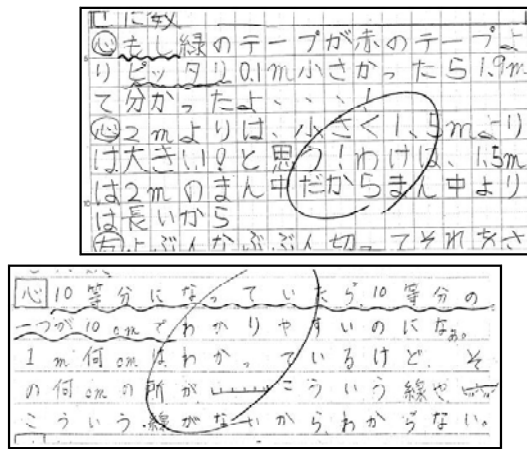 に数
心もし緑のテープが赤のテープよ
りピッタリ0.1m小さかったら1.9m
て分かったよ、、、!
心2mよりは、小さく1.5mより
は大きい!と思う!わけは、1.5m
は2mのまん中だからまん中より
は長いから
よぶんなぶぶん切ってそれをさ
心10等分になっていたら10等分の
一つが10cmでわかりやすいのになぁ。
1m何cmはわかっているけど、そ
の何cmの所がこういう線や
こういう線がないからわからない。